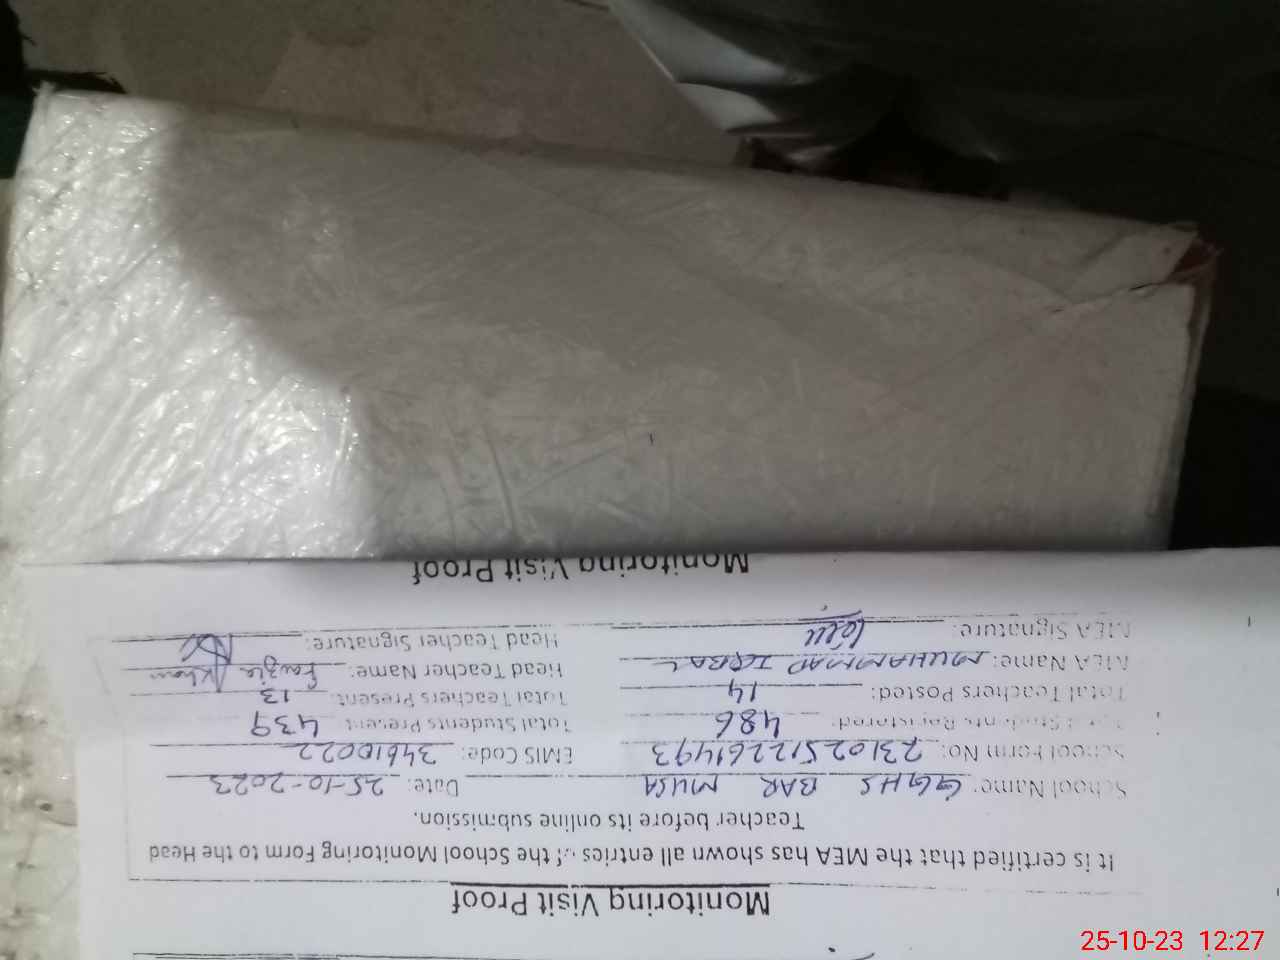 Monitoring Visit Proof
It is certified that the MEA has shown all entries of the School Monitoring Form to the Head
Teacher before its online submission.
School Name: GGHS BAR MUSA Date: 25-10-2023
School Form No: 231025122261493 EMIS Code: 34610022
Total Students Registered: 486 Total Students Present: 439
Total Teachers Posted: 14 Total Teachers Present: 13
MEA Name: MUHAMMAD IQBAL Head Teacher Name: Fauzia Khan
MEA Signature: Head Teacher Signature:
Monitoring Visit Proof
25-10-23 12:27